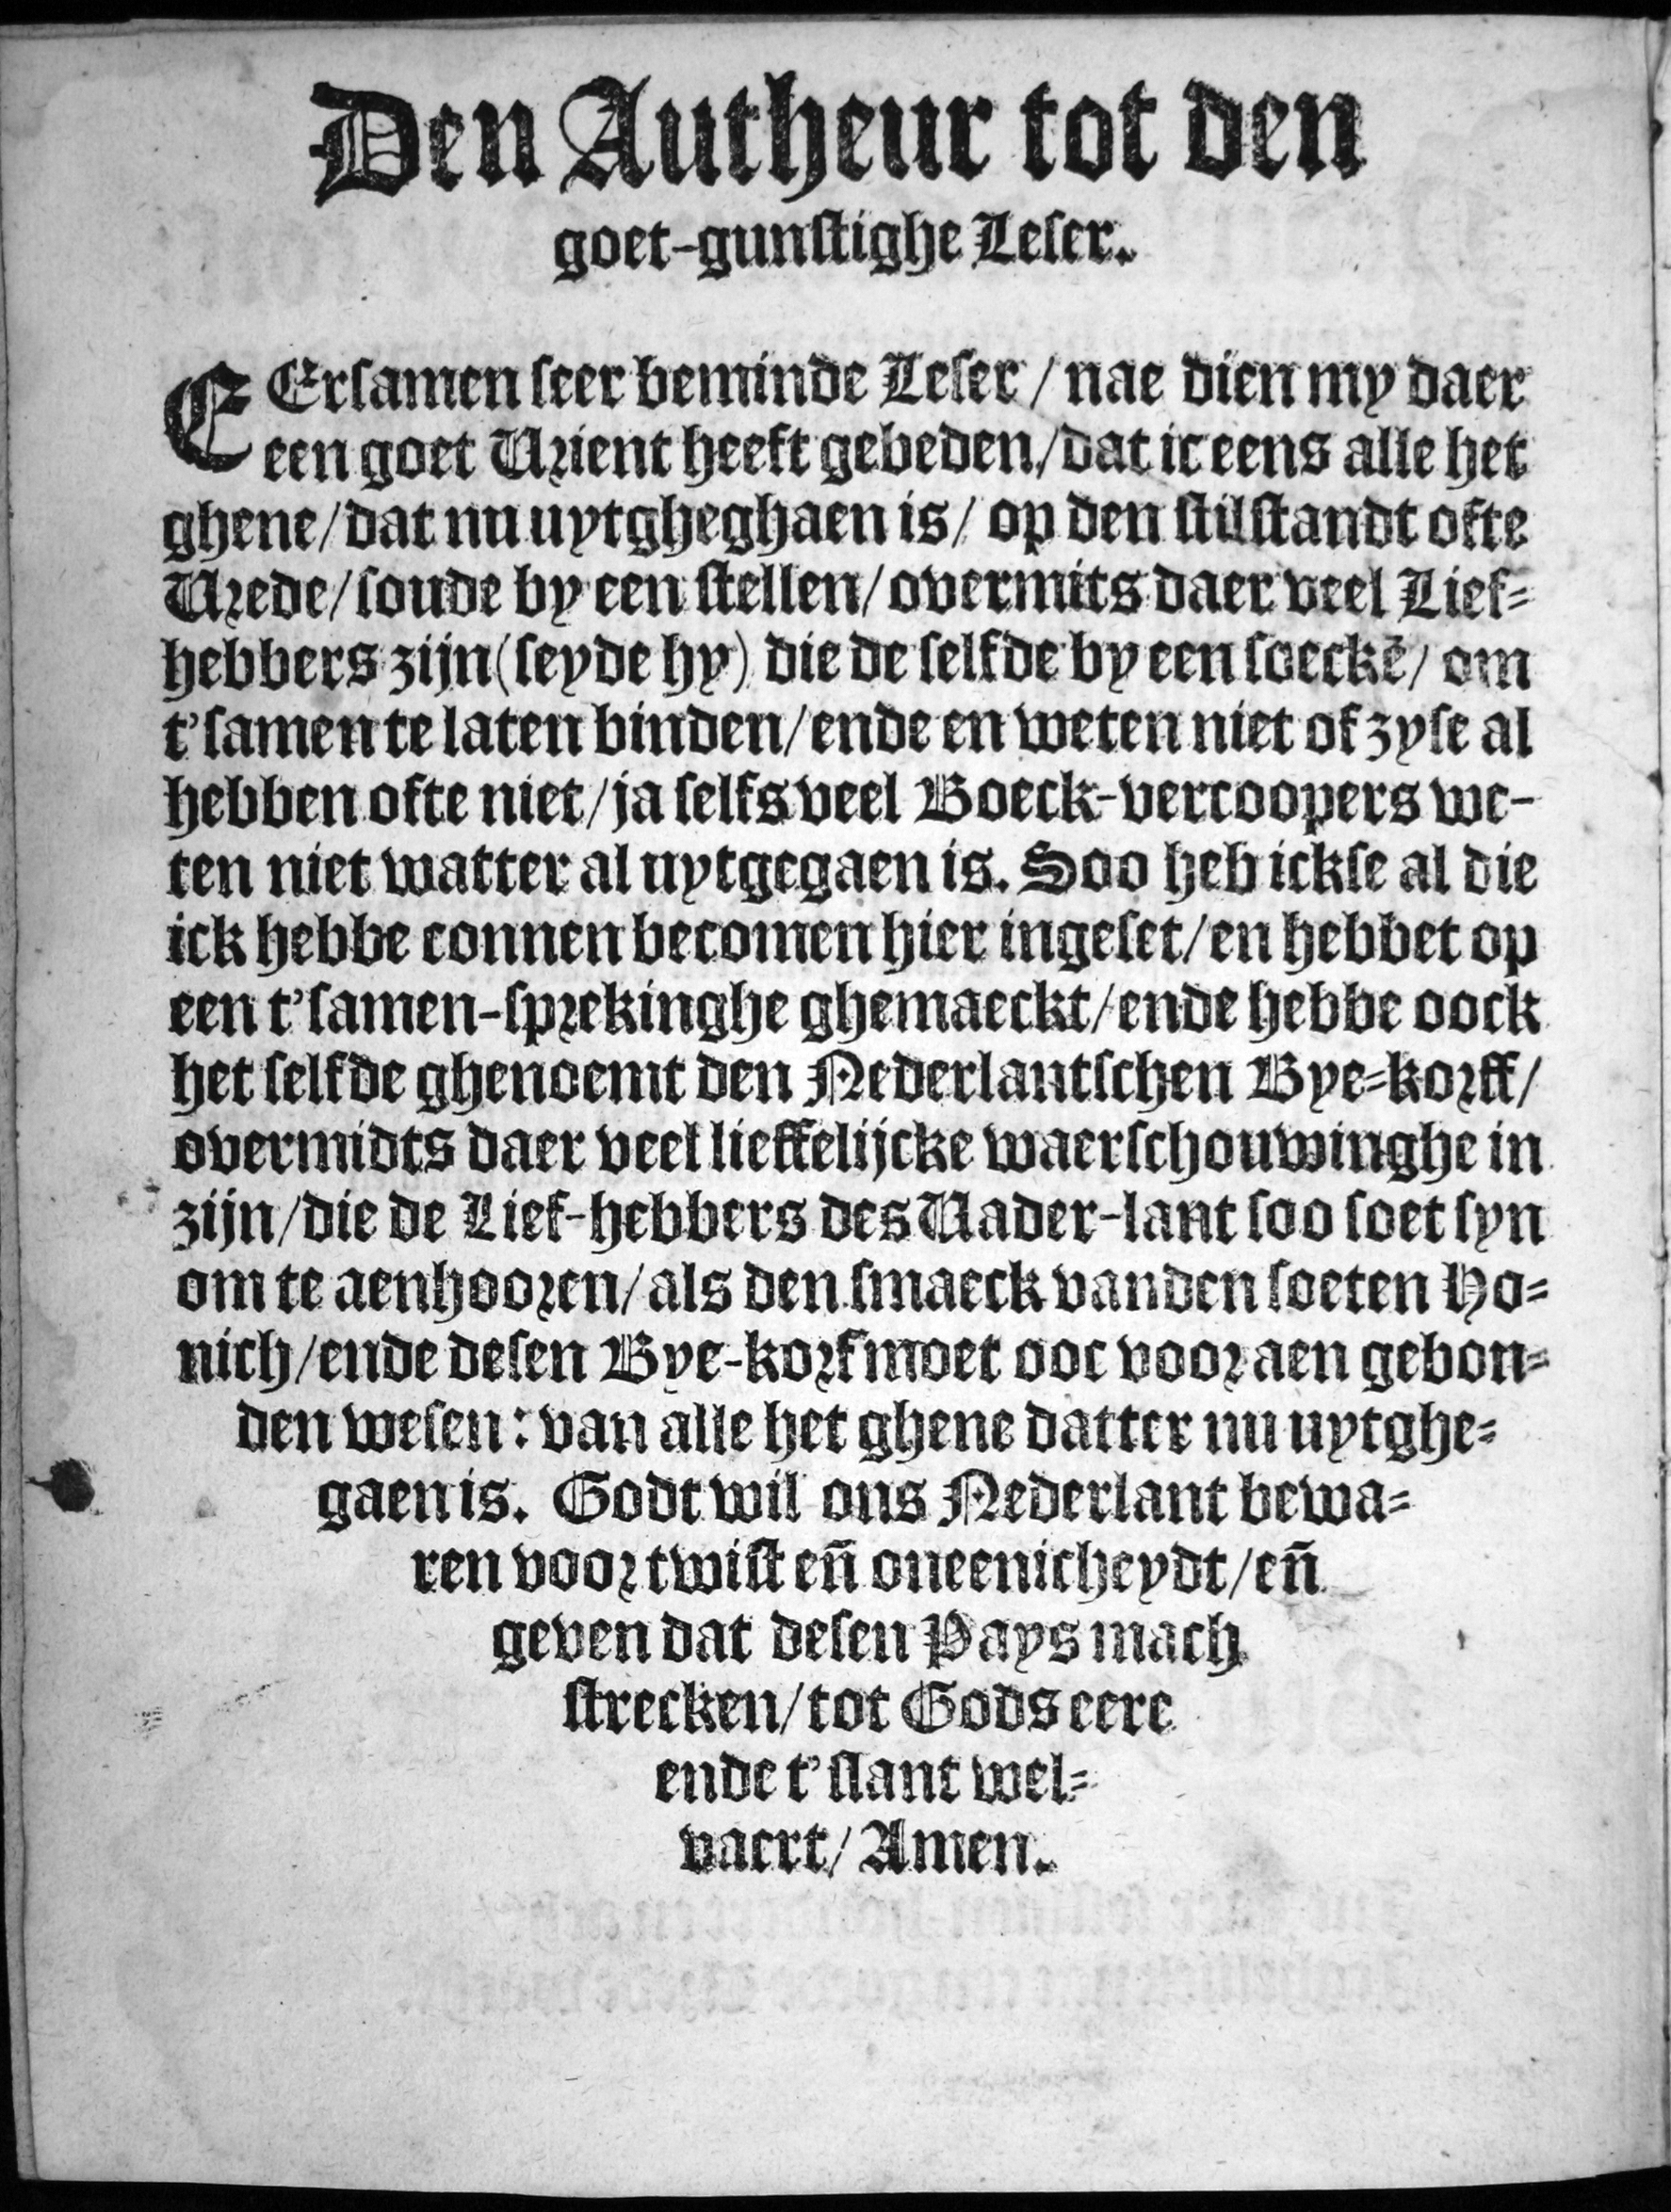 Den Autheur tot den
goet-gunstighe Leser.
EErsamen seer beminde Leser / nae dien my daer
een goet Vrient heeft gebeden / dat ic eens alle het
ghene / dat nu uytgheghaen is / op den stilstandt ofte
Vrede / soude by een stellen / overmits daer veel Lief-
hebbers zijn (seyde hy) die de selfde by een soeckē / om
t'samen te laten binden / ende en weten niet of zyse al
hebben ofte niet / ja selfs veel Boeck-vercoopers we-
ten niet watter al uytgegaen is. Soo heb ickse al die
ick hebbe connen becomen hier ingeset / en hebbet op
een t'samen-sprekinghe ghemaeckt / ende hebbe oock
het selfde ghenoemt den Nederlantschen Bye-korff /
overmidts daer veel lieffelijcke waerschouwinghe in
zijn / die de Lief-hebbers des Vader-lant soo soet syn
om te aenhooren / als den smaeck vanden soeten Ho-
nich / ende desen Bye-korf moet ooc voor aen gebon-
den wesen : van alle het ghene datter nu uytghe-
gaen is. Godt wil ons Nederlant bewa-
ren voor twist eñ oneenicheydt / eñ
geven dat desen Pays mach
strecken / tot Gods eere
ende t'slant wel-
vaert / Amen.